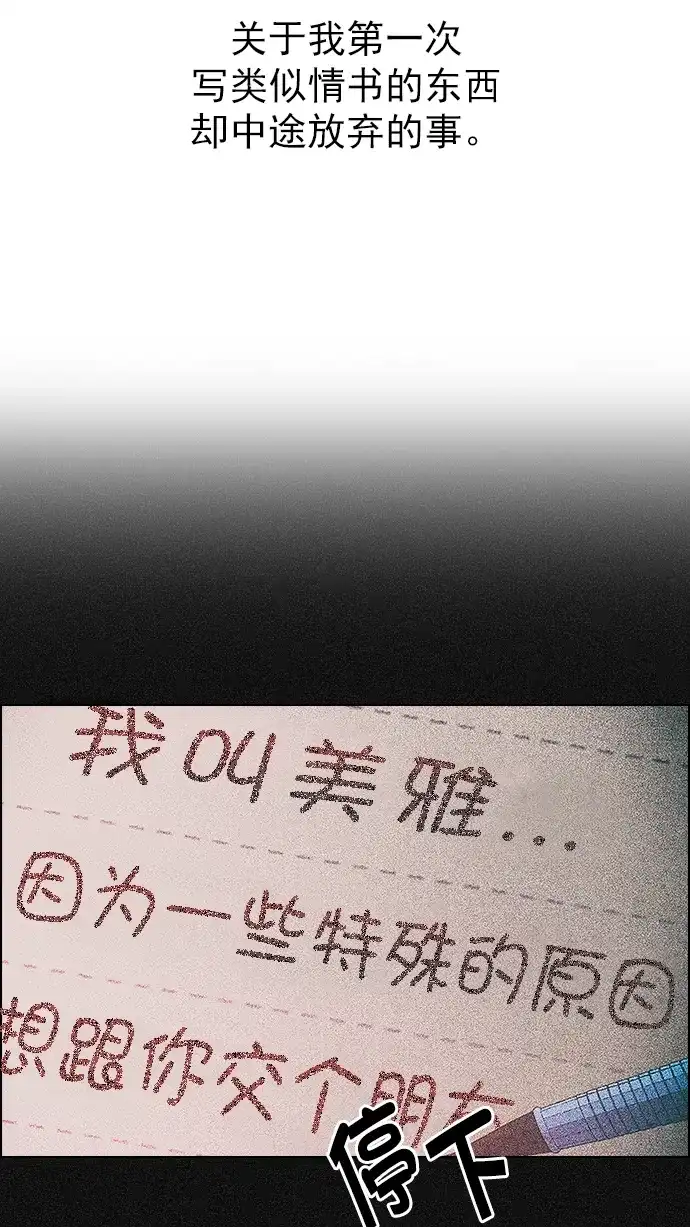 关于我第一次
写类似情书的东西
却中途放弃的事。
我叫美雅...
因为一些特殊的原因
想跟你交个朋友
停下